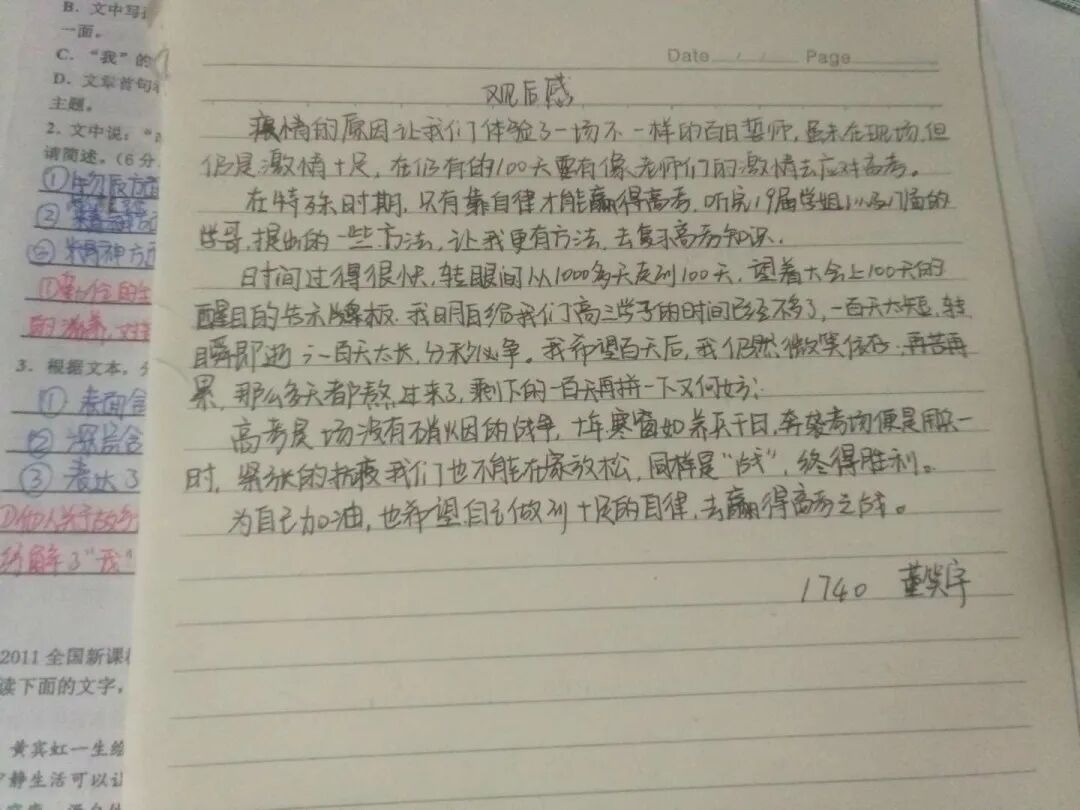 B. 文中写
一面。
C. “我”的
D. 文章首句
主题。
2. 文中说：“
请简述。（6分
①
②
③ 精神方
①
的滋养，对
3. 根据文本，
① 表面含
② 深层含
③ 表达了
“我”
2011 全国新课
读下面的文字，
黄宾虹一生绘
静生活可以让
Date / / Page
观后感
疫情的原因让我们体验了一场不一样的百日誓师，虽未在现场，但
仍是激情十足，在仅有的100天要有像老师们的激情去应对高考。
在特殊时期，只有靠自律才能赢得高考，听完19届学姐以及17届的
学哥，提出的一些方法，让我更有方法，去复习高考知识。
时间过得很快，转眼间从1000多天走到100天，望着大会上100天的
醒目的告示牌板，我明白给我们高三学子的时间已经不多了，一百天太短，转
瞬即逝；一百天太长，分秒必争。我希望百天后，我仍然微笑依存，再苦再
累，那么多天都熬过来了，剩下的一百天再拼一下又何妨；
高考是场没有硝烟的战争，十年寒窗如养兵千日，奔赴考场便是用兵一
时，紧张的抗疫我们也不能在家放松，同样是“战”，终得胜利。
为自己加油，也希望自己做到十足的自律，去赢得高考之战。
1740 董笑宇